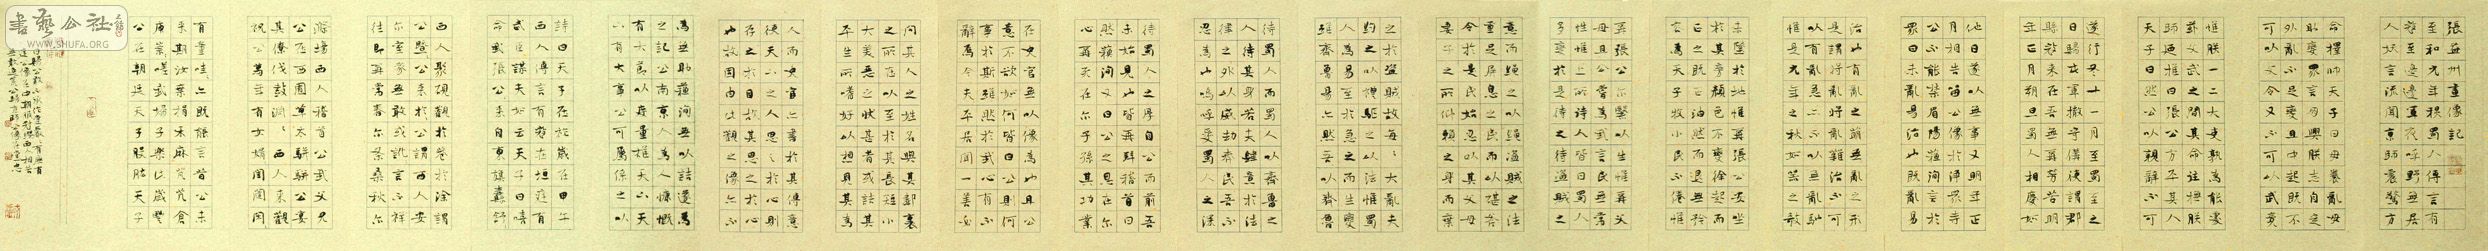 張益州畫像記
至和元年秋蜀人傳言有
寇至邊軍夜呼野無居
人妖言流聞京師震驚方
命擇帥天子曰毋養亂毋
助變眾言朋興朕志自定
外亂不作變且中起既不
可以文令又不可以武競
惟朕一二大吏孰為能處
茲文武之間其命往撫朕
師乃推曰張公方平其人
天子曰然公以親辭不可
遂行冬十一月至蜀至之
日歸屯軍撤守備使謂郡
縣寇來在吾無爾勞苦明
年正月朔旦蜀人相慶如
他日遂以無事又明年正
月相告留公像於淨眾寺
公不能禁眉陽蘇洵言於
眾曰未亂易治也既亂易
治也有亂之萌無亂之形
是謂將亂將亂難治不可
以有亂急亦不可以無亂弛
惟是元年之秋如器之欹
未墜於地惟爾張公安坐
於其旁顏色不變徐起而
正之既正油然而退無矜
容為天子牧小民不倦惟
爾張公爾繄以生惟爾父
母且公嘗為我言民無常
性惟上所待人皆曰蜀人
多變於是待之以待盜賊之
意而繩之以繩盜賊之法
重足屏息之民而以砧斧
令於是民始忍以其父母
妻子之所仰賴之身而棄
之於盜賊故每每大亂夫
約之以禮驅之以法惟蜀
人為易至於急之而生變
雖齊魯亦然吾以齊魯
待蜀人而蜀人亦自以齊魯之
人待其身若夫肆意於法
律之外以威劫齊民吾不
忍為也嗚呼愛蜀人之深
待蜀人之厚自公而前吾
未始見也皆再拜稽首曰
然蘇洵又曰公之恩在爾
心爾死在爾子孫其功業
在史官無以像為也且公
意不欲如何皆曰公則何
事於斯雖然於我心有不
釋焉今夫平居聞一善必
問其人之姓名與其鄰里
之所在以至於其長短小
大美惡之狀甚者或詰其
平生所嗜好以想見其為
人而史官亦書於其傳意
使天下之人思之於心則
存之於目故其思之於心
也固由此觀之像亦不
為無助蘇洵無以詰遂為
之記公南京人為人慷慨
有大節以度量雄天下天
下有大事公可屬系之以
詩曰天子在祚歲在甲午
西人傳言有寇在垣庭有
武臣謀夫如雲天子曰嘻
命我張公公來自東旗纛舒
西人聚觀於巷於塗謂
公暨暨公來于于公謂西人安
爾室家無敢或訛訛言不祥
往即爾常春爾條桑秋爾
滌場西人稽首公我父兄
公在西囿草木駢駢公宴
其僚伐鼓淵淵西人來觀
祝公萬年有女娟娟閨闥
有童哇哇亦既能言昔公未
來期汝棄捐禾麻芃芃倉
庾崇崇嗟我婦子樂此歲豐
公在朝廷天子股肱天子
曰歸公敢不承作堂嚴嚴有廡有
庭公像在中朝服冠纓西人相告
無敢逸荒公歸京師公像在堂
書藝公社
WWW.SHUFA.ORG